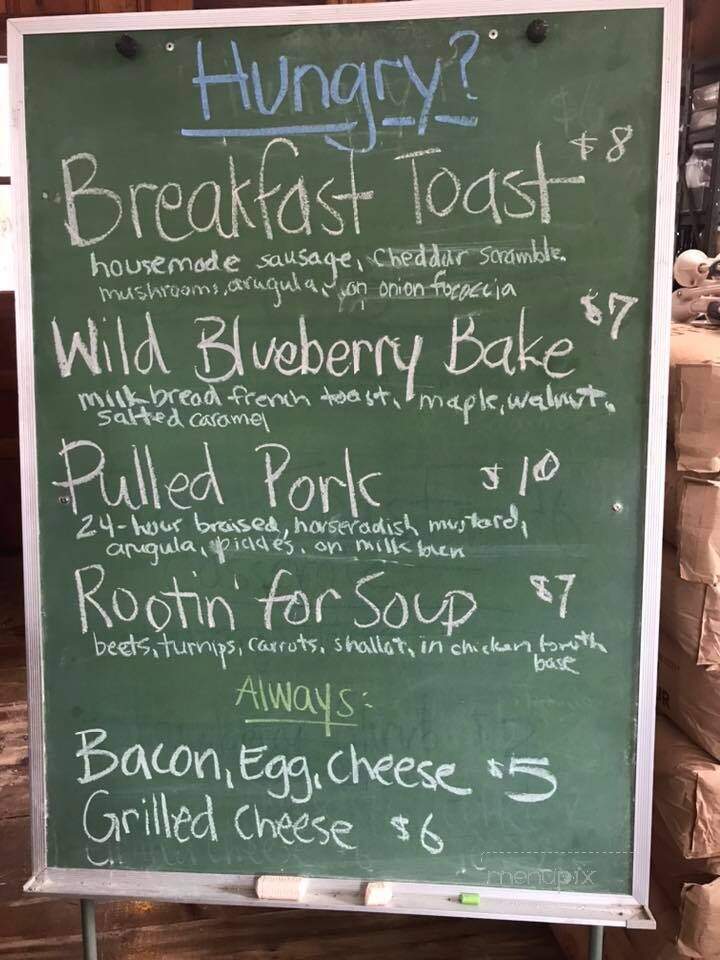 Hungry?
Breakfast Toast $8
housemade sausage, cheddar scramble,
mushrooms, arugula, on onion fococcia
Wild Blueberry Bake $7
milkbread french toast, maple, walnut,
salted caramel
Pulled Pork $10
24-hour braised, horseradish mustard,
arugula, pickles, on milk bun
Rootin' for Soup $7
beets, turnips, carrots, shallot, in chicken broth
base
Always:
Bacon, Egg, Cheese $5
Grilled Cheese $6
menupix